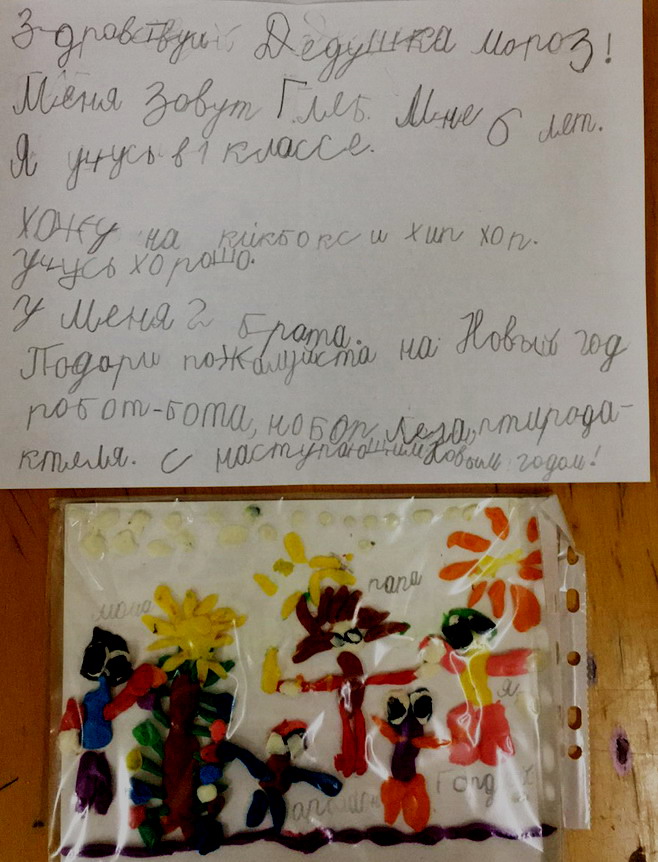 Здравствуй Дедушка мороз!
Меня Зовут Глеб. Мне 6 лет.
Я учусь в 1 классе.
хожу на кикбокс и хип хоп.
учусь хорошо.
У меня 2 брата.
Подари пожалуйста на Новый год
робот-бота, нобор Лега, птирода-
ктеля. С наступающим Новым годом!
мама
папа
я